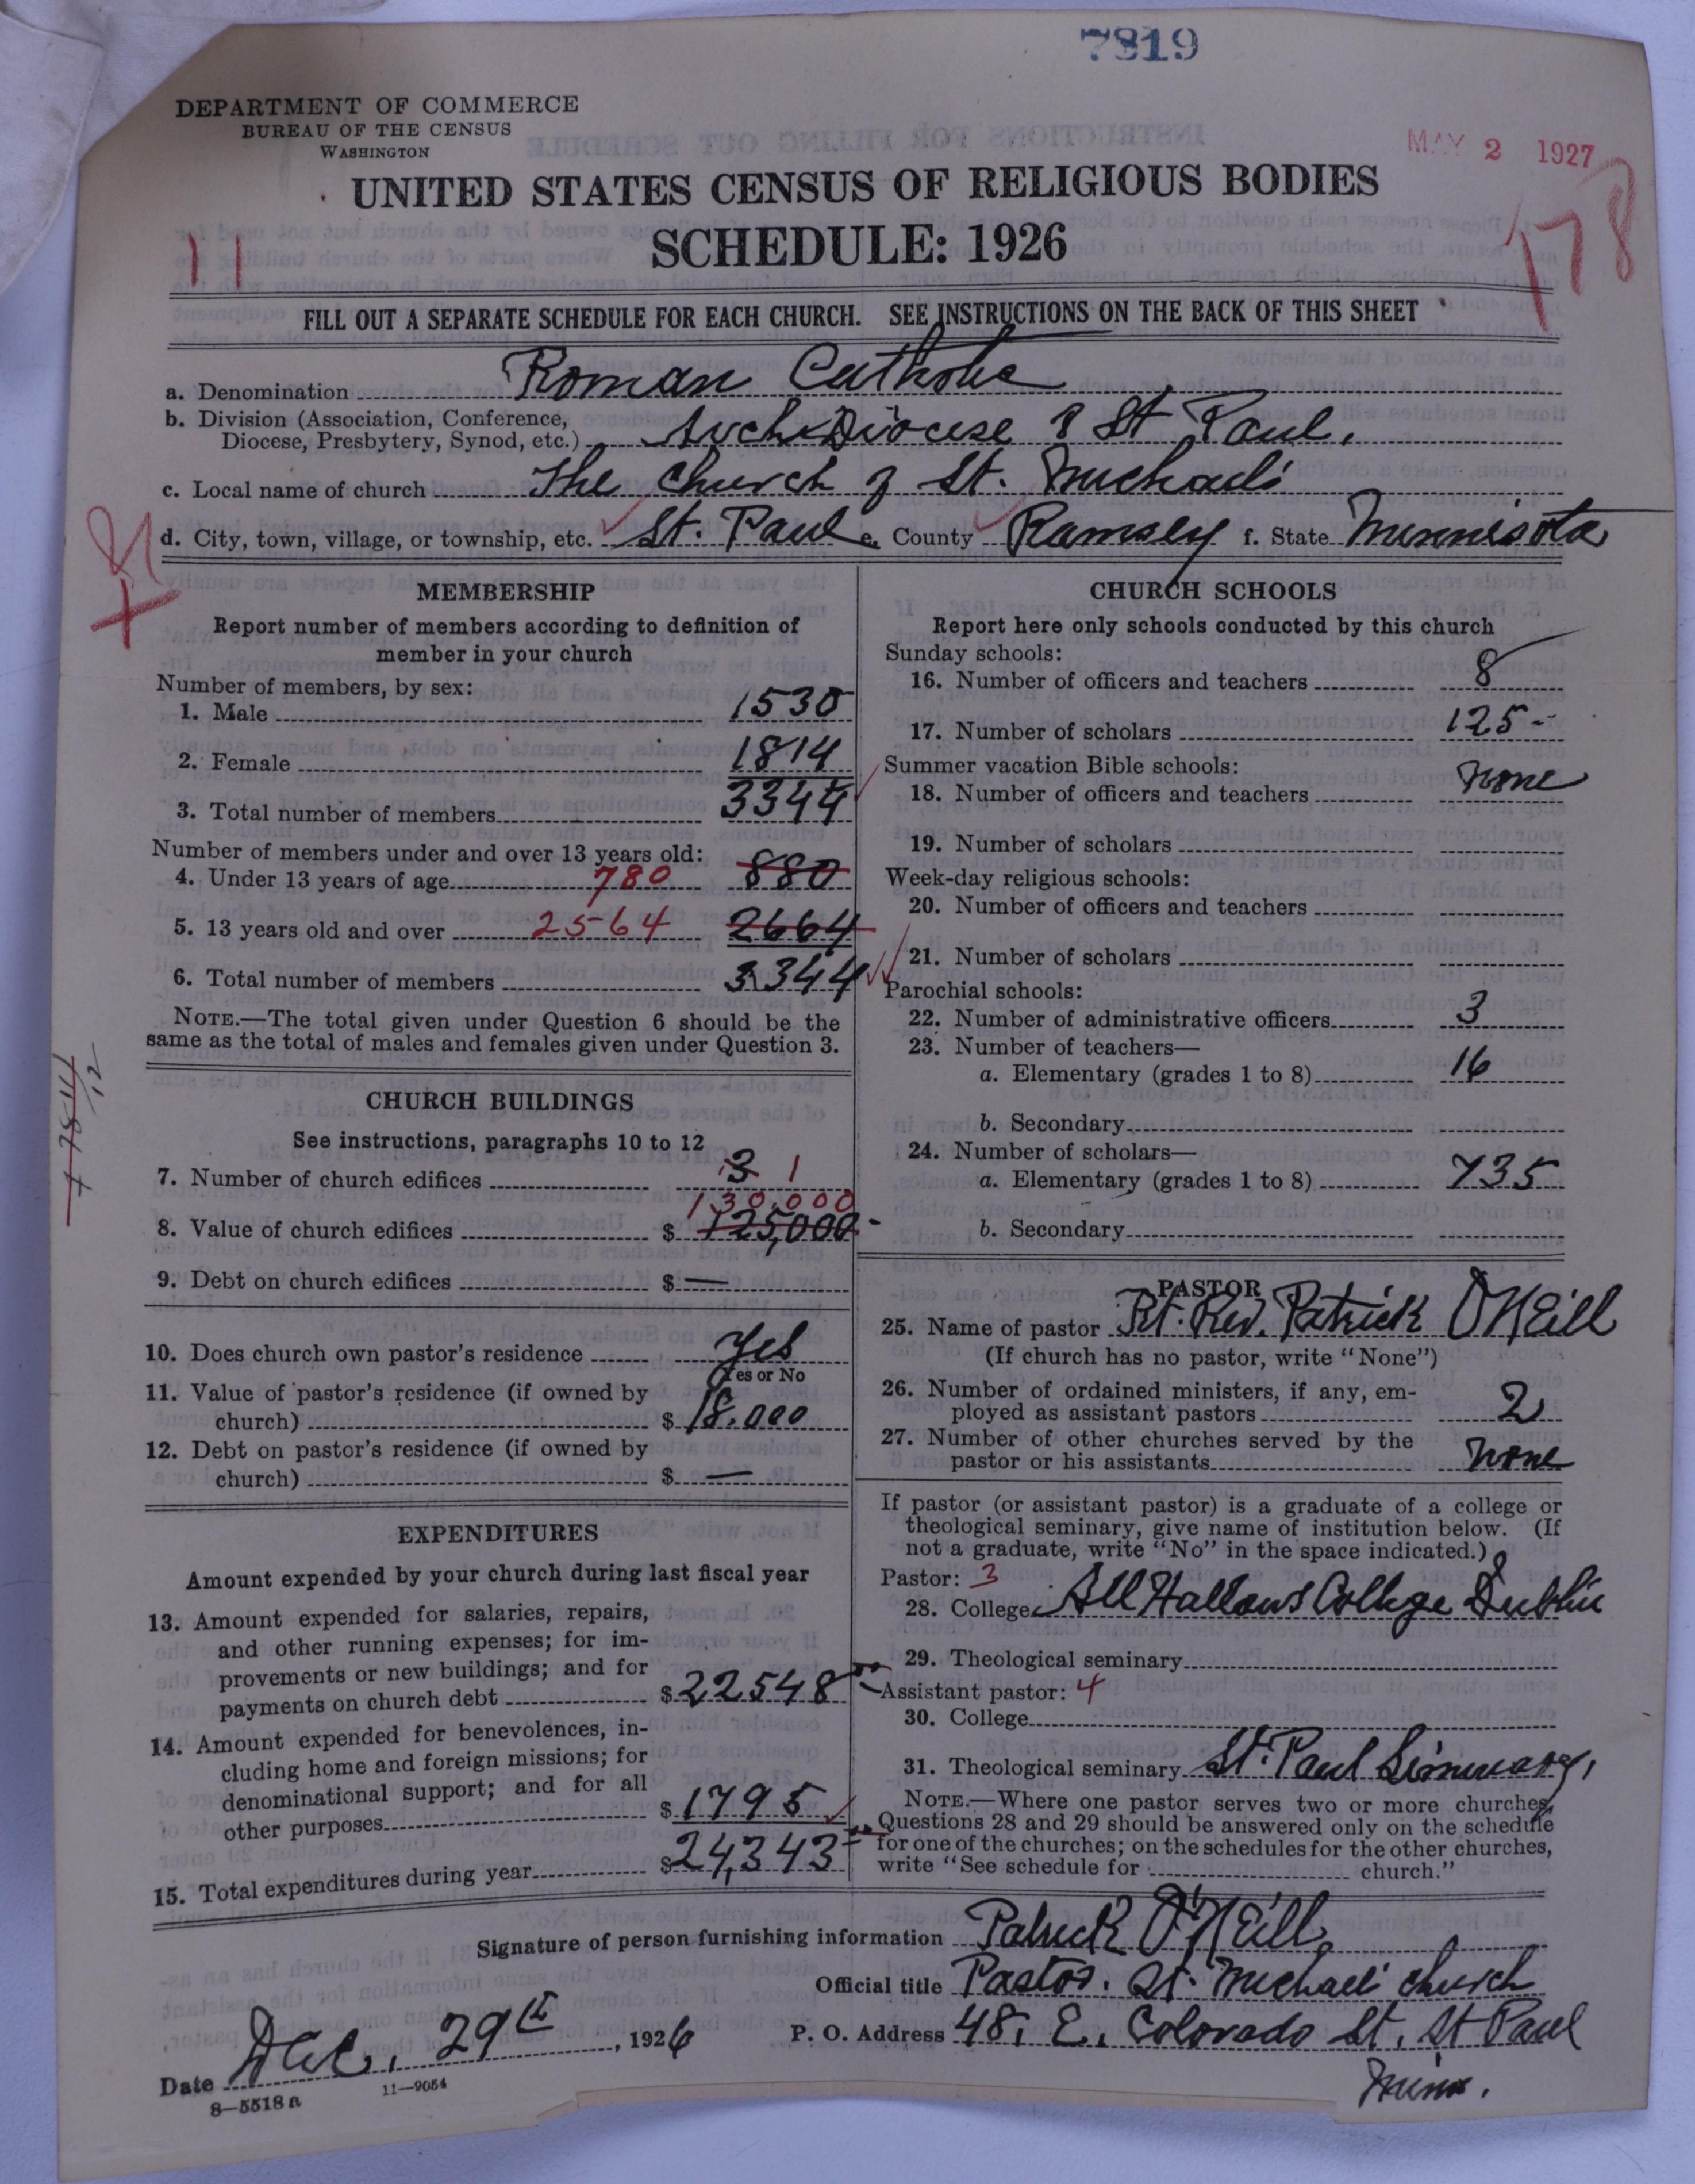 7819
DEPARTMENT OF COMMERCE
BUREAU OF THE CENSUS
WASHINGTON
MAY 2 1927
UNITED STATES CENSUS OF RELIGIOUS BODIES
SCHEDULE: 1926
11
178
FILL OUT A SEPARATE SCHEDULE FOR EACH CHURCH. SEE INSTRUCTIONS ON THE BACK OF THIS SHEET
a. Denomination Roman Catholic
b. Division (Association, Conference,
Diocese, Presbytery, Synod, etc.) ArchDiocese of St Paul.
c. Local name of church The Church of St. Michael's
d. City, town, village, or township, etc. St. Paul e. County Ramsey f. State Minnesota
MEMBERSHIP
Report number of members according to definition of
member in your church
Number of members, by sex:
1. Male 1530
2. Female 1814
3. Total number of members 3344
Number of members under and over 13 years old:
4. Under 13 years of age 780 880
5. 13 years old and over 2564 2664
6. Total number of members 3344
NOTE.—The total given under Question 6 should be the
same as the total of males and females given under Question 3.
CHURCH BUILDINGS
See instructions, paragraphs 10 to 12
7. Number of church edifices 3 1
130,000
8. Value of church edifices $ 125,000
9. Debt on church edifices $ —
10. Does church own pastor's residence Yes
Yes or No
11. Value of pastor's residence (if owned by
church) $ 18,000
12. Debt on pastor's residence (if owned by
church) $ —
EXPENDITURES
Amount expended by your church during last fiscal year
13. Amount expended for salaries, repairs,
and other running expenses; for im-
provements or new buildings; and for
payments on church debt $ 22548
14. Amount expended for benevolences, in-
cluding home and foreign missions; for
denominational support; and for all
other purposes $ 1795
15. Total expenditures during year $ 24,343
CHURCH SCHOOLS
Report here only schools conducted by this church
Sunday schools:
16. Number of officers and teachers 8
17. Number of scholars 125
Summer vacation Bible schools:
18. Number of officers and teachers None
19. Number of scholars
Week-day religious schools:
20. Number of officers and teachers
21. Number of scholars
Parochial schools:
22. Number of administrative officers 3
23. Number of teachers—
a. Elementary (grades 1 to 8) 16
b. Secondary
24. Number of scholars—
a. Elementary (grades 1 to 8) 735
b. Secondary
PASTOR
25. Name of pastor Rt. Rev. Patrick O'Neill
(If church has no pastor, write "None")
26. Number of ordained ministers, if any, em-
ployed as assistant pastors 2
27. Number of other churches served by the
pastor or his assistants None
If pastor (or assistant pastor) is a graduate of a college or
theological seminary, give name of institution below. (If
not a graduate, write "No" in the space indicated.)
Pastor: 3
28. College All Hallows College Dublin
29. Theological seminary
Assistant pastor: 4
30. College
31. Theological seminary St. Paul Seminary,
NOTE.—Where one pastor serves two or more churches,
Questions 28 and 29 should be answered only on the schedule
for one of the churches; on the schedules for the other churches,
write "See schedule for church."
Signature of person furnishing information Patrick O'Neill
Official title Pastor. St. Michael's Church
Date Dec. 29th, 1926 P. O. Address 48, E. Colorado St. St Paul
Minn.
8—5518 a 11—9054